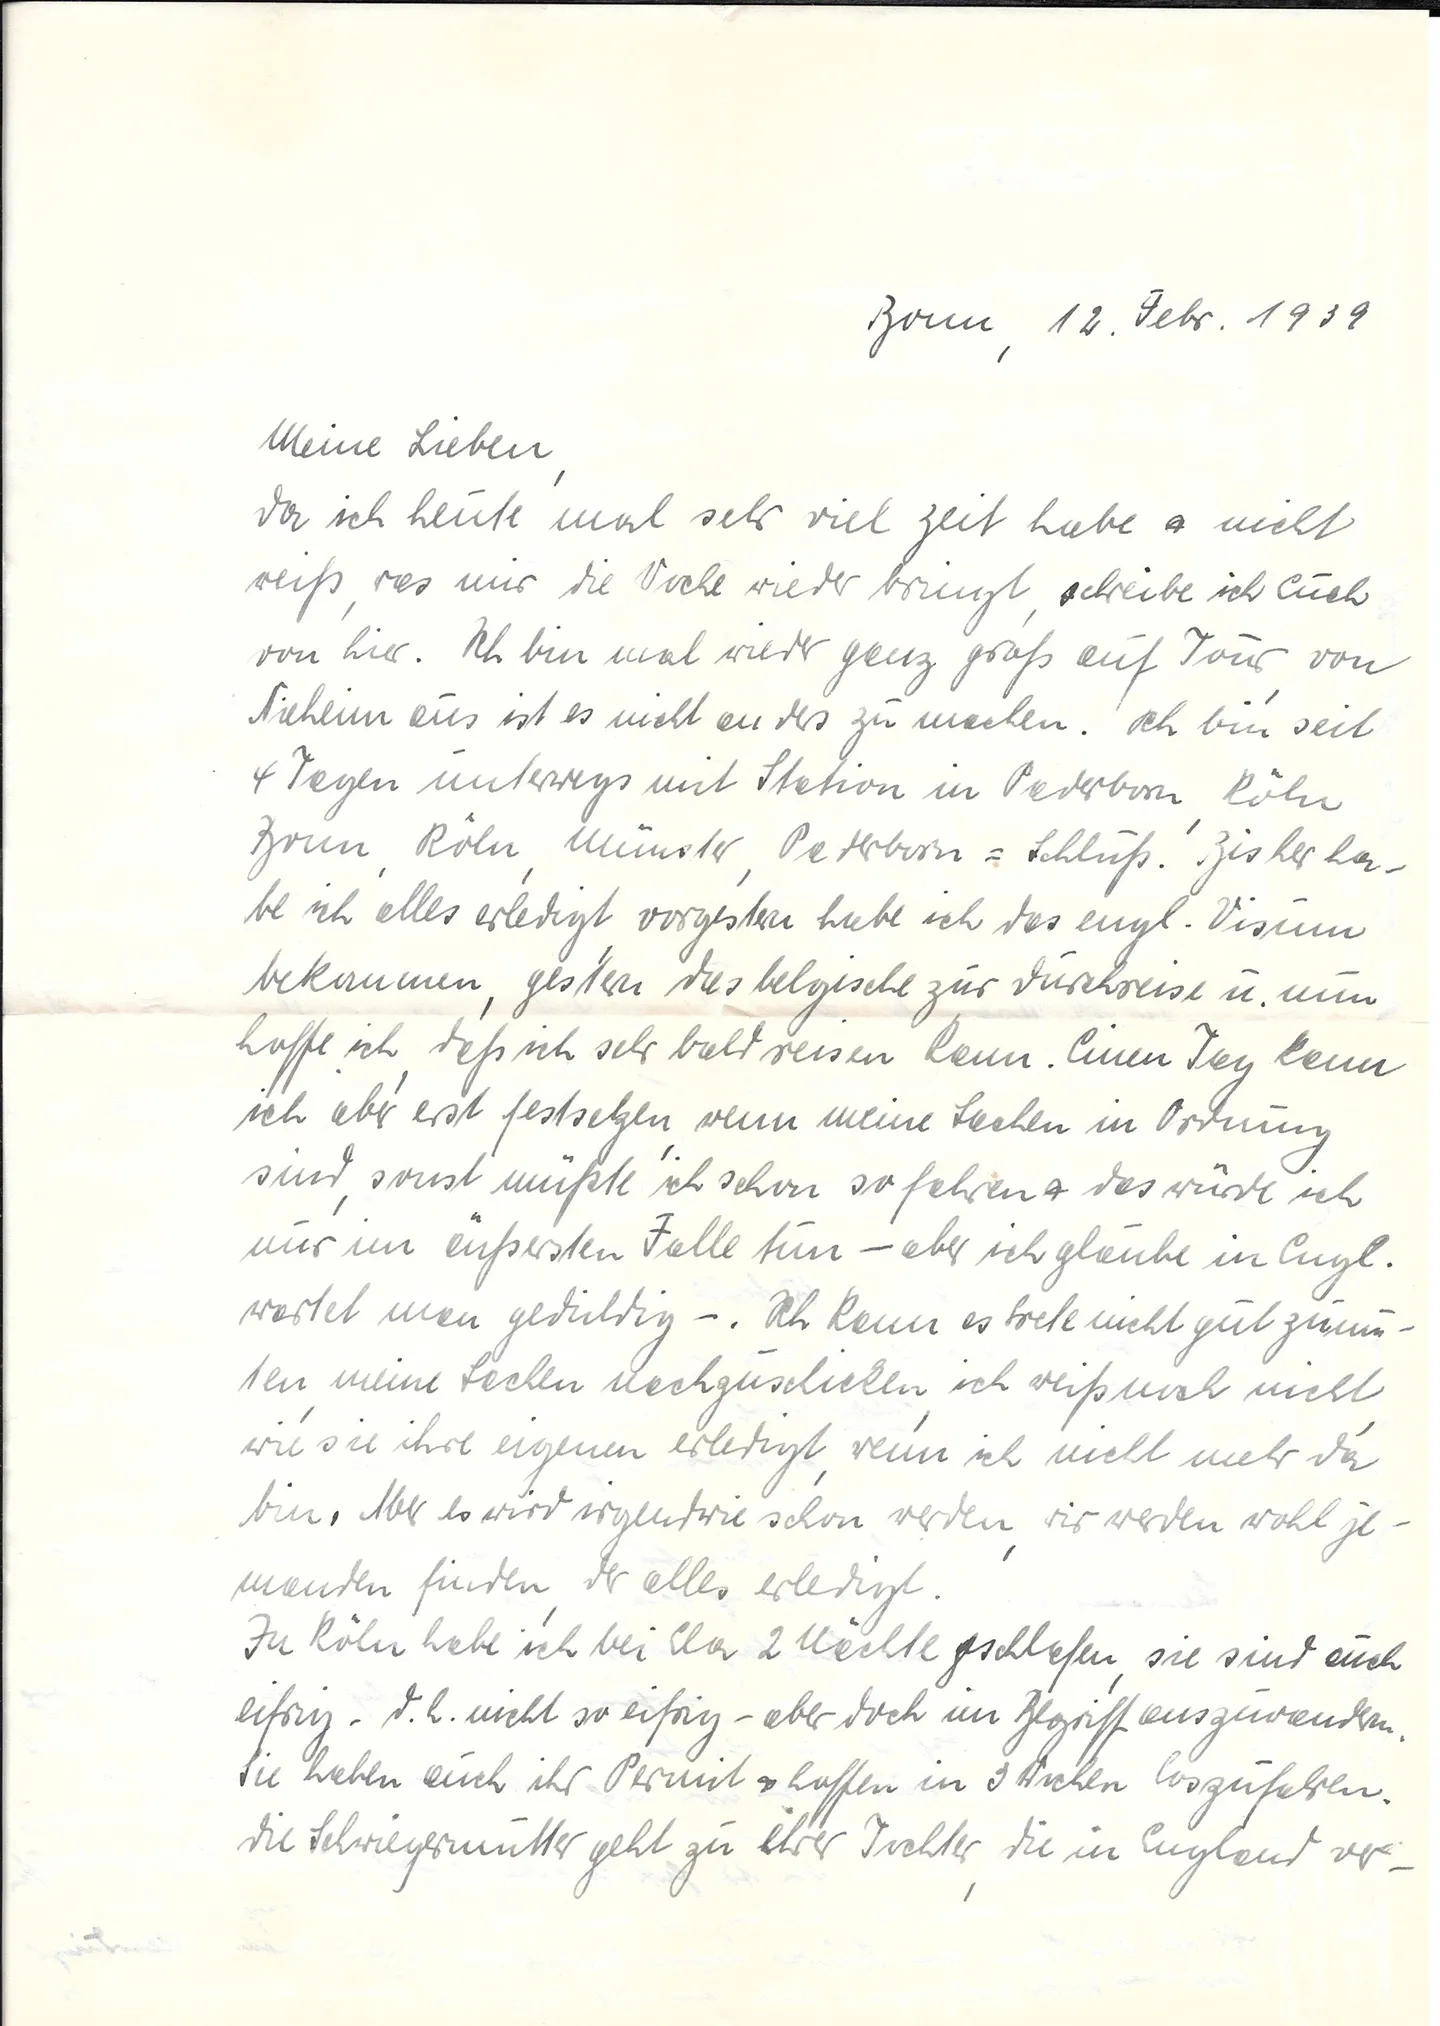 Bonn, 12. Febr. 1939
Meine Lieben,
da ich heute mal sehr viel Zeit habe & nicht
weiß, was mir die Woche wieder bringt, schreibe ich Euch
von hier. Ich bin mal wieder ganz groß auf Tour, von
Nieheim aus ist es nicht anders zu machen. Ich bin seit
4 Tagen unterwegs mit Station in Paderborn, Köln
Bonn, Köln, Münster, Paderborn = Schluß. Bisher ha-
be ich alles erledigt, vorgestern habe ich das engl. Visum
bekommen, gestern das belgische zur Durchreise u. nun
hoffe ich, daß ich sehr bald reisen kann. Einen Tag kann
ich aber erst festsetzen, wenn meine Sachen in Ordnung
sind, sonst müßte ich schon so fahren & das würde ich
nur im äußersten Falle tun – aber ich glaube in Engl.
wartet man geduldig –. Ich kann es nicht gut zumu-
ten, meine Sachen nachzuschicken, ich weiß noch nicht,
wie sie ihre eigenen erledigt, wenn ich nicht mehr da
bin. Aber es wird irgendwie schon werden, wir werden wohl je-
manden finden, der alles erledigt.
In Köln habe ich bei 2 Nächte geschlafen, sie sind auch
eifrig – d.h. nicht so eifrig – aber doch im Begriff auszuwandern.
Sie haben auch ihr Permit & hoffen in 3 Wochen loszufahren.
die Schwiegermutter geht zu ihrer Tochter, die in England ver-